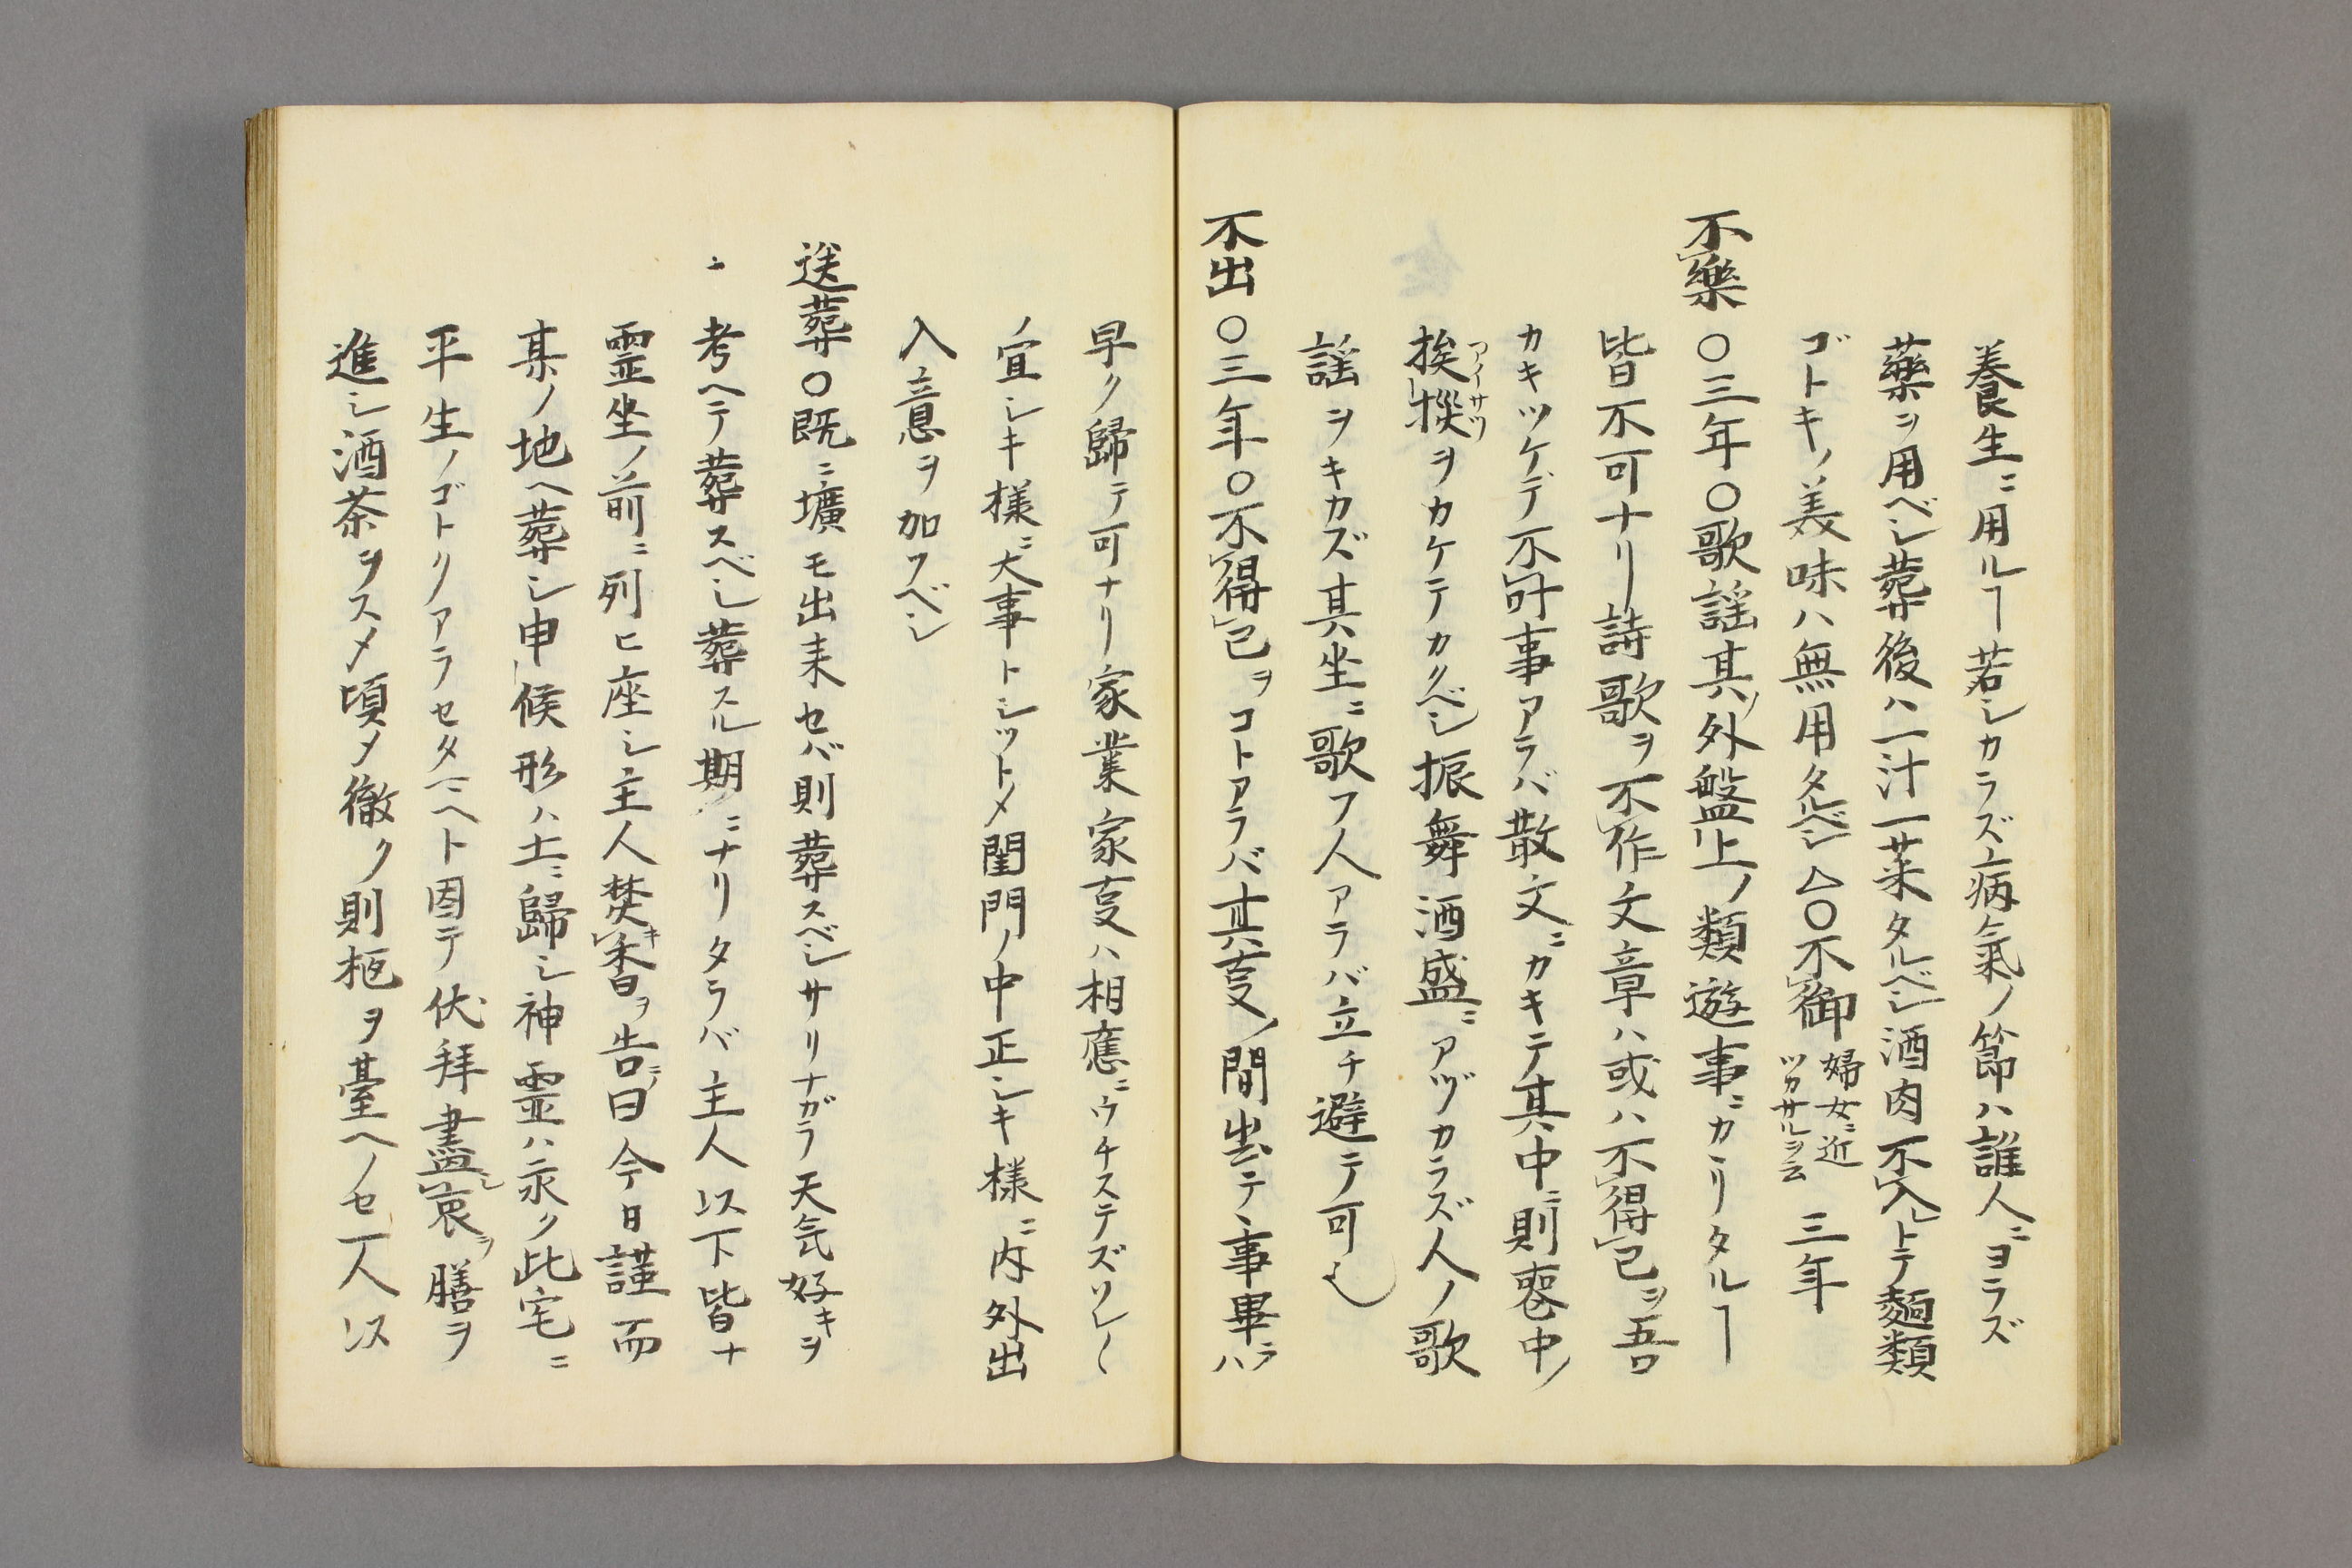 養生ニ用ルヿ若シカラズ病氣ノ節ハ誰人ニヨラズ
藥ヲ用ベシ葬後ハ一汁一菜タルベシ酒肉不入トテ麺類
ゴトキノ美味ハ無用タルベシ△○不御婦女ニ近ツカサルヲ云三年
不樂○三年○歌謡其外盤上ノ類遊事ニカヽリタルヿ
皆不可ナリ詩歌ヲ不作文章ハ或ハ不得已ヲ吾
カキツケデ不叶事アラバ散文ニカキテ其中ニ則喪中ノ
挨拶アイサツヲカケテカクベシ振舞酒盛ニアヅカラズ人ノ歌
謡ヲキカズ其坐ニ歌フ人アラバ立チ避テ可也
不出○三年○不得已ヲコトアラバ其叓ノ間出テ事畢ラハ
早ク歸テ可ナリ家業家叓ハ相應ニウチステズソレ〱
ノ宜シキ様ニ大事トシツトメ閨門ノ中正シキ様ニ内外出
入意ヲ加フベシ
送葬○既ニ壙モ出来セバ則葬スベシサリナガラ天気好キヲ
考ヘテ葬スベシ葬スル期ニナリタラバ主人以下皆ナ
霊坐ノ前ニ列ヒ座シ主人焚キ香ヲ告ニ曰今日謹而
某ノ地ヘ葬シ申候形ハ土ニ歸シ神霊ハ永ク此宅ニ
平生ノゴトクアラセタマヘト因テ伏拜盡シ哀ヲ膳ヲ
進シ酒茶ヲスメ頃メ徹ク則柩ヲ臺ヘノセ一人以